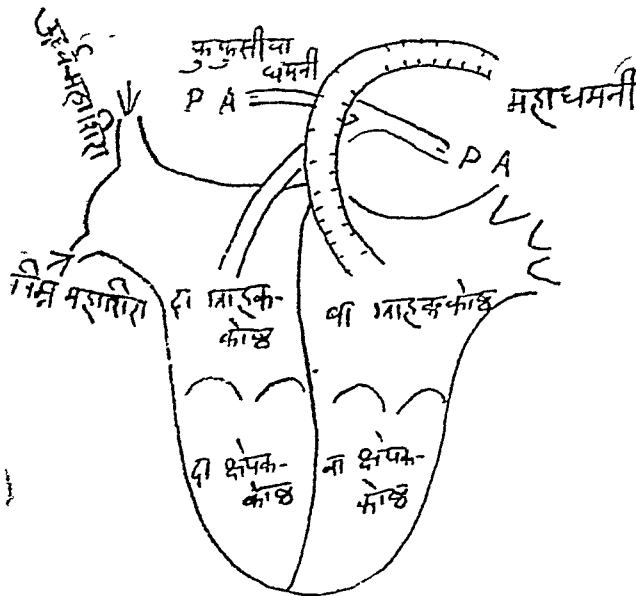 ऊर्ध्व महाशिरा
फुफुसीया
धमनी
P A
महाधमनी
P A
निम्न महाशिरा
दा ग्राहक-
कोष्ठ
वा ग्राहक कोष्ठ
दा क्षेपक-
कोष्ठ
वा क्षेपक-
कोष्ठ